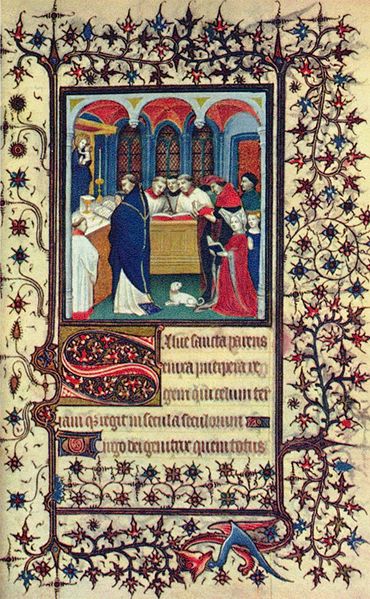 Salue sancta parens
enixa puerpera re
gem qui celum ter
ramqꝫ regit in secula seculorum
Uirgo dei genitrix quem totus